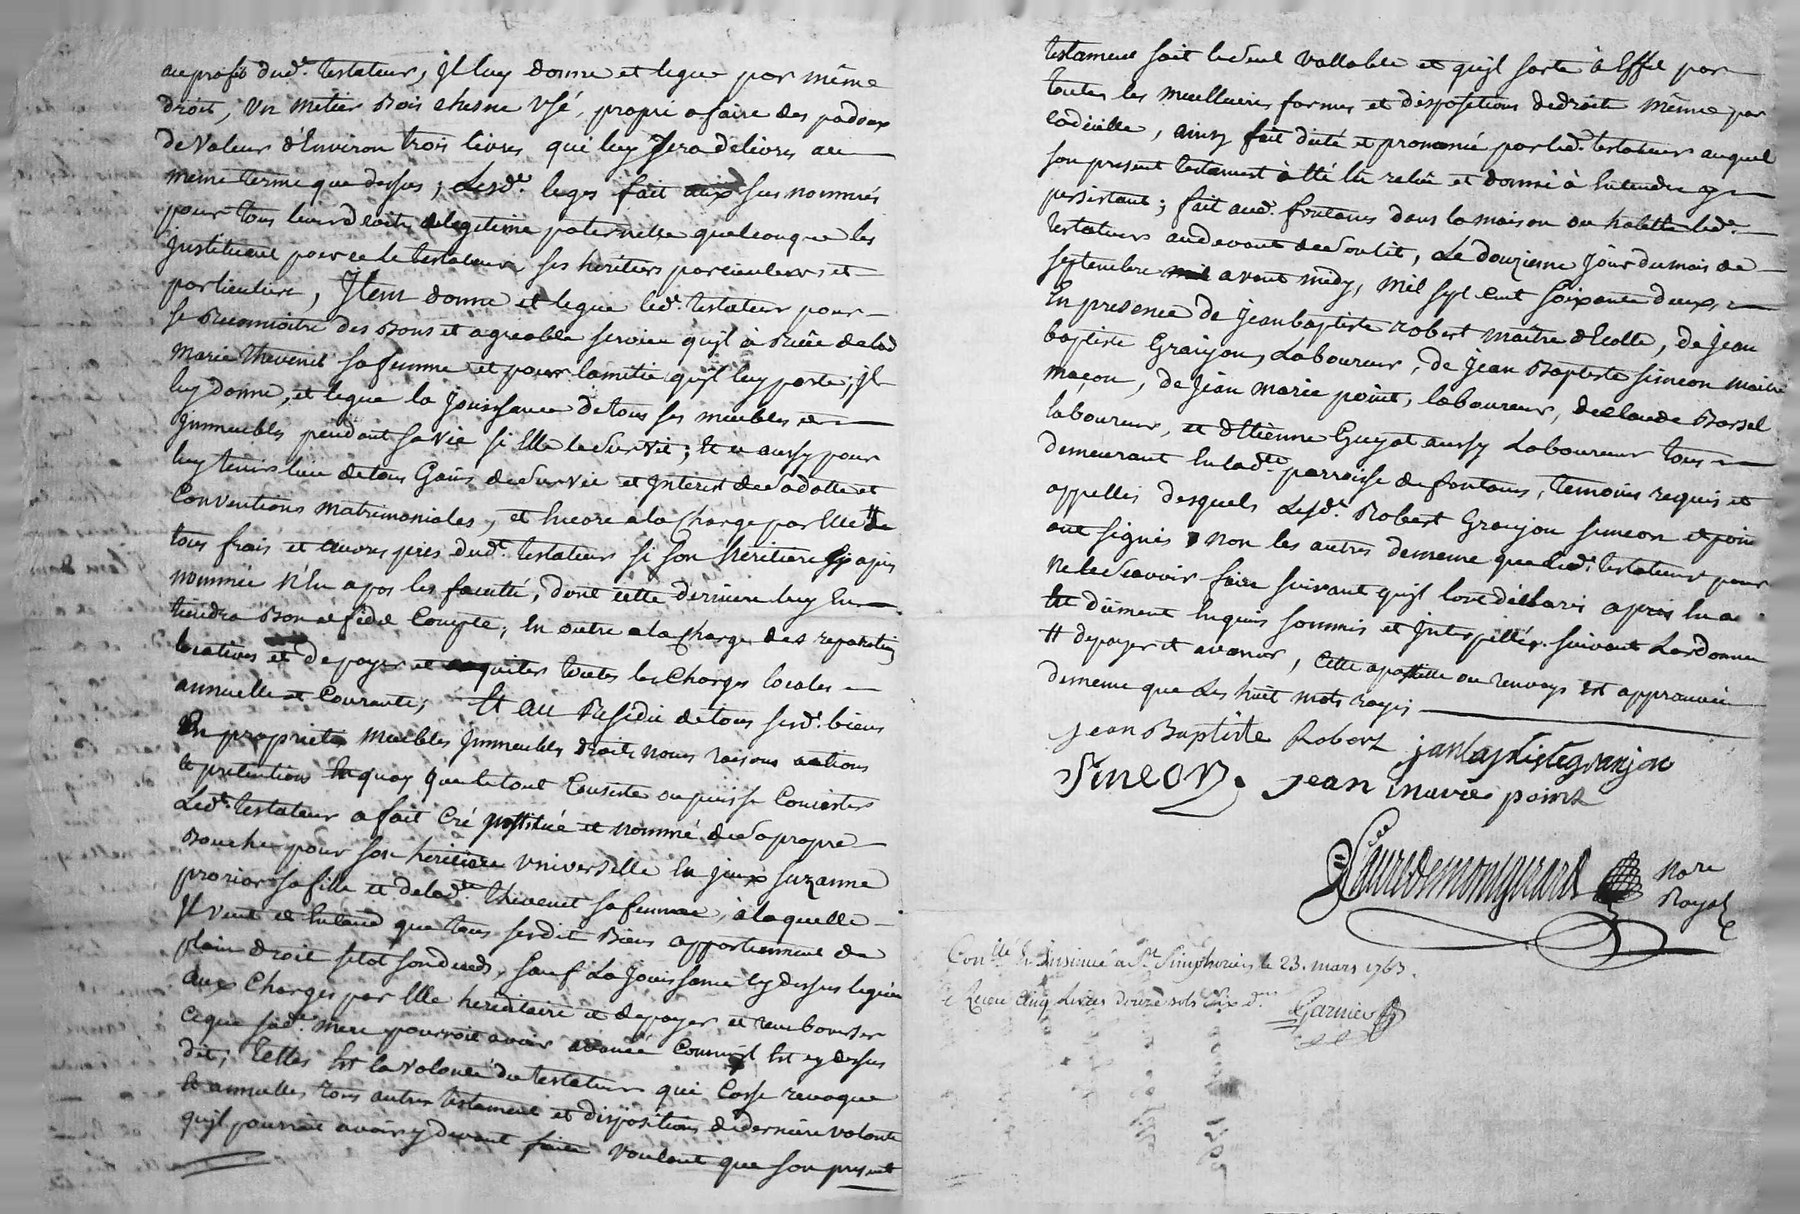 au profit dud.t testateur, Il luy donne et legue par même
droit, un metier Bois chesne usé, propre a faire des padoux
de valeur d'Environ trois livres qui luy sera delivré au
meme terme que dessus; Lesd.ts leges fait aux sus nommés
pour tous leurs droits de legitime paternelle quelconque les
Instituant pour ce le testateur ses heritiers particuliers et
particuliere, Item donne et legue led.t testateur pour
se Reconnoitre des Bons et agreable service qu'il à Reçûe de lad
Marie thevenet sa femme et pour lamitié qu'il luy porte; Il
luy donne, et legue la Jouissance de tous ses meubles et
Immeubles pendant sa vie si Elle le survit; Et ce aussy pour
luy tenir lieu de tous Gains de survie et Interest de sa dotte et
Conventions matrimoniales, et Encore a la Charge par Elle # de
tous frais et auvres pies dud.t testateur si son heritiere cy apres
nommée n'En a pas les faculté, dont cette derniere luy En
tiendra Bon et fidel Compte; En outre a la Charge des reparations
locatives et de payer et acquiter toutes les Charges locales
annuelle et Courante; Et au Residu de tous sesd.ts biens
En proprietes meubles Immeubles droits noms raisons actions
et pretentions En quoy que le tout Consiste ou puisse Consister
Led.t testateur a fait Cré Institué et nommé de sa propre
Bouche pour son heritiere universelle En Jeux Suzanne
prorior sa fille et de lad.te thevenet sa femme, à laquelle
Il veut et Entend que tous sesdit Biens appartiennent de
plain droit sitot son deceds, sauf La Jouissance cy dessus leguée
aux Charges par Elle hereditaire et de payer et rembourser
ce que sad.te mere pourroit avoir avancé Comme Il Est cy dessus
dit; telles Est la volonté du testateur qui Casse revoque
et annulle, tous autres testament et dispositions de derniere volonté
qu'Il pourroit avoir cy devant faites voulant que son present
testament soit le seul vallable et qu'Il sorte à Effet par
toutes les meilleures formes et dispositions de droit même par
codicille, ainsy fait dicté et prononcé par led.t testateur auquel
son present testament à Eté lû relû et donné à Entendre y
persistant; fait aud.t fontanes dans la maison ou habitte led.t
testateur au devant de son lit, Le douzieme Jour du mois de
septembre mil avant midy, mil sept cent soixante deux,
En presence de Jean baptiste robert maitre d'Ecolle, de Jean
baptiste Granjon, Laboureur, de Jean Baptiste Simeon maitre
maçon, de Jean marie point, laboureur, de Claude Barsel
laboureur, et d'Etienne Guyot aussy Laboureur tous
demeurant En lad.te parroisse de fontanes, temoins requis et
appellés desquels Lesd.ts Robert Granjon simeon et poin
ont signés non les autres de meme que led.t testateur pour
ne le sçavoir faire suivant qu'Il l'ont déclaré après En a
Eté dûment Enquis sommés et Interpellés suivant Lordonna
# de payer et avancer, Cette apostille ou renvoys Est approuvée
de meme que Les huit mots rayés
Jean Baptiste Robert janbaptiste granjon
Simeon. jean marie point
Faure de montgirard Nore
Royal
Con.llé & Insinué a S.t Simphorien le 23. mars 1763.
et Recu cinq Livres douze sols six d.rs Garnier